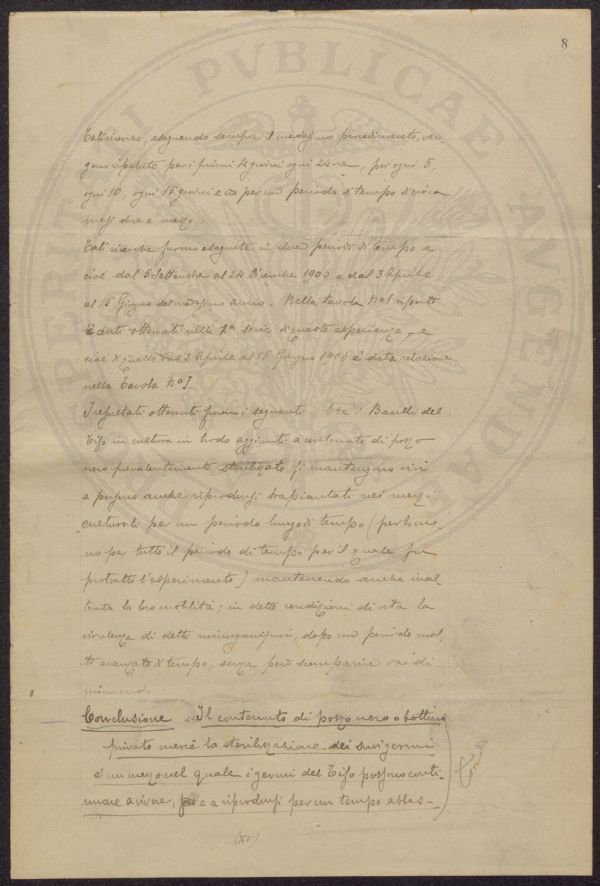 8
Tali ricerche, eseguendo sempre il medesimo procedimento, ven-
gono ripetute per i primi giorni ogni 24 ore, poi ogni 5,
ogni 10, ogni 15 giorni e ciò per un periodo di tempo di circa
mesi due e mezzo.
Tali ricerche furono eseguite in due periodi di tempo e
cioè dal 5 Settembre al 24 Dicembre 1905 e dal 3 Aprile
al 15 Giugno del medesimo anno. Nella tavola No 1 riporto
i dati ottenuti nella 1a serie di queste esperienze, e
cioè di quelle dal 3 Aprile al 15 Giugno 1906 è data relazione
nella Tavola No I
I resultati ottenuti furono i seguenti: I Bacilli del
Tifo in cultura in brodo aggiunti a contenuto di pozzo
nero prevalentemente sterilizzato si mantengono vivi
e possono anche riprodursi trapiantati nei mezzi
culturali per un periodo lungo di tempo (per lo me-
no per tutto il periodo di tempo per il quale fu
protratto l'esperimento) mantenendo anche inal-
terata la loro mobilità; in dette condizioni di vita la
virulenza di detti microrganismi, dopo un periodo mol-
to avanzato di tempo, senza però scomparire va di-
minuendo.
Conclusione - Il contenuto di pozzo nero o bottino
privato mercè la sterilizzazione dei suoi germi
è un mezzo nel quale i germi del Tifo possono conti-
nuare a vivere, e a riprodursi per un tempo abbas-
(XV)
PERITVRI PVBLICAE AVGENDAE